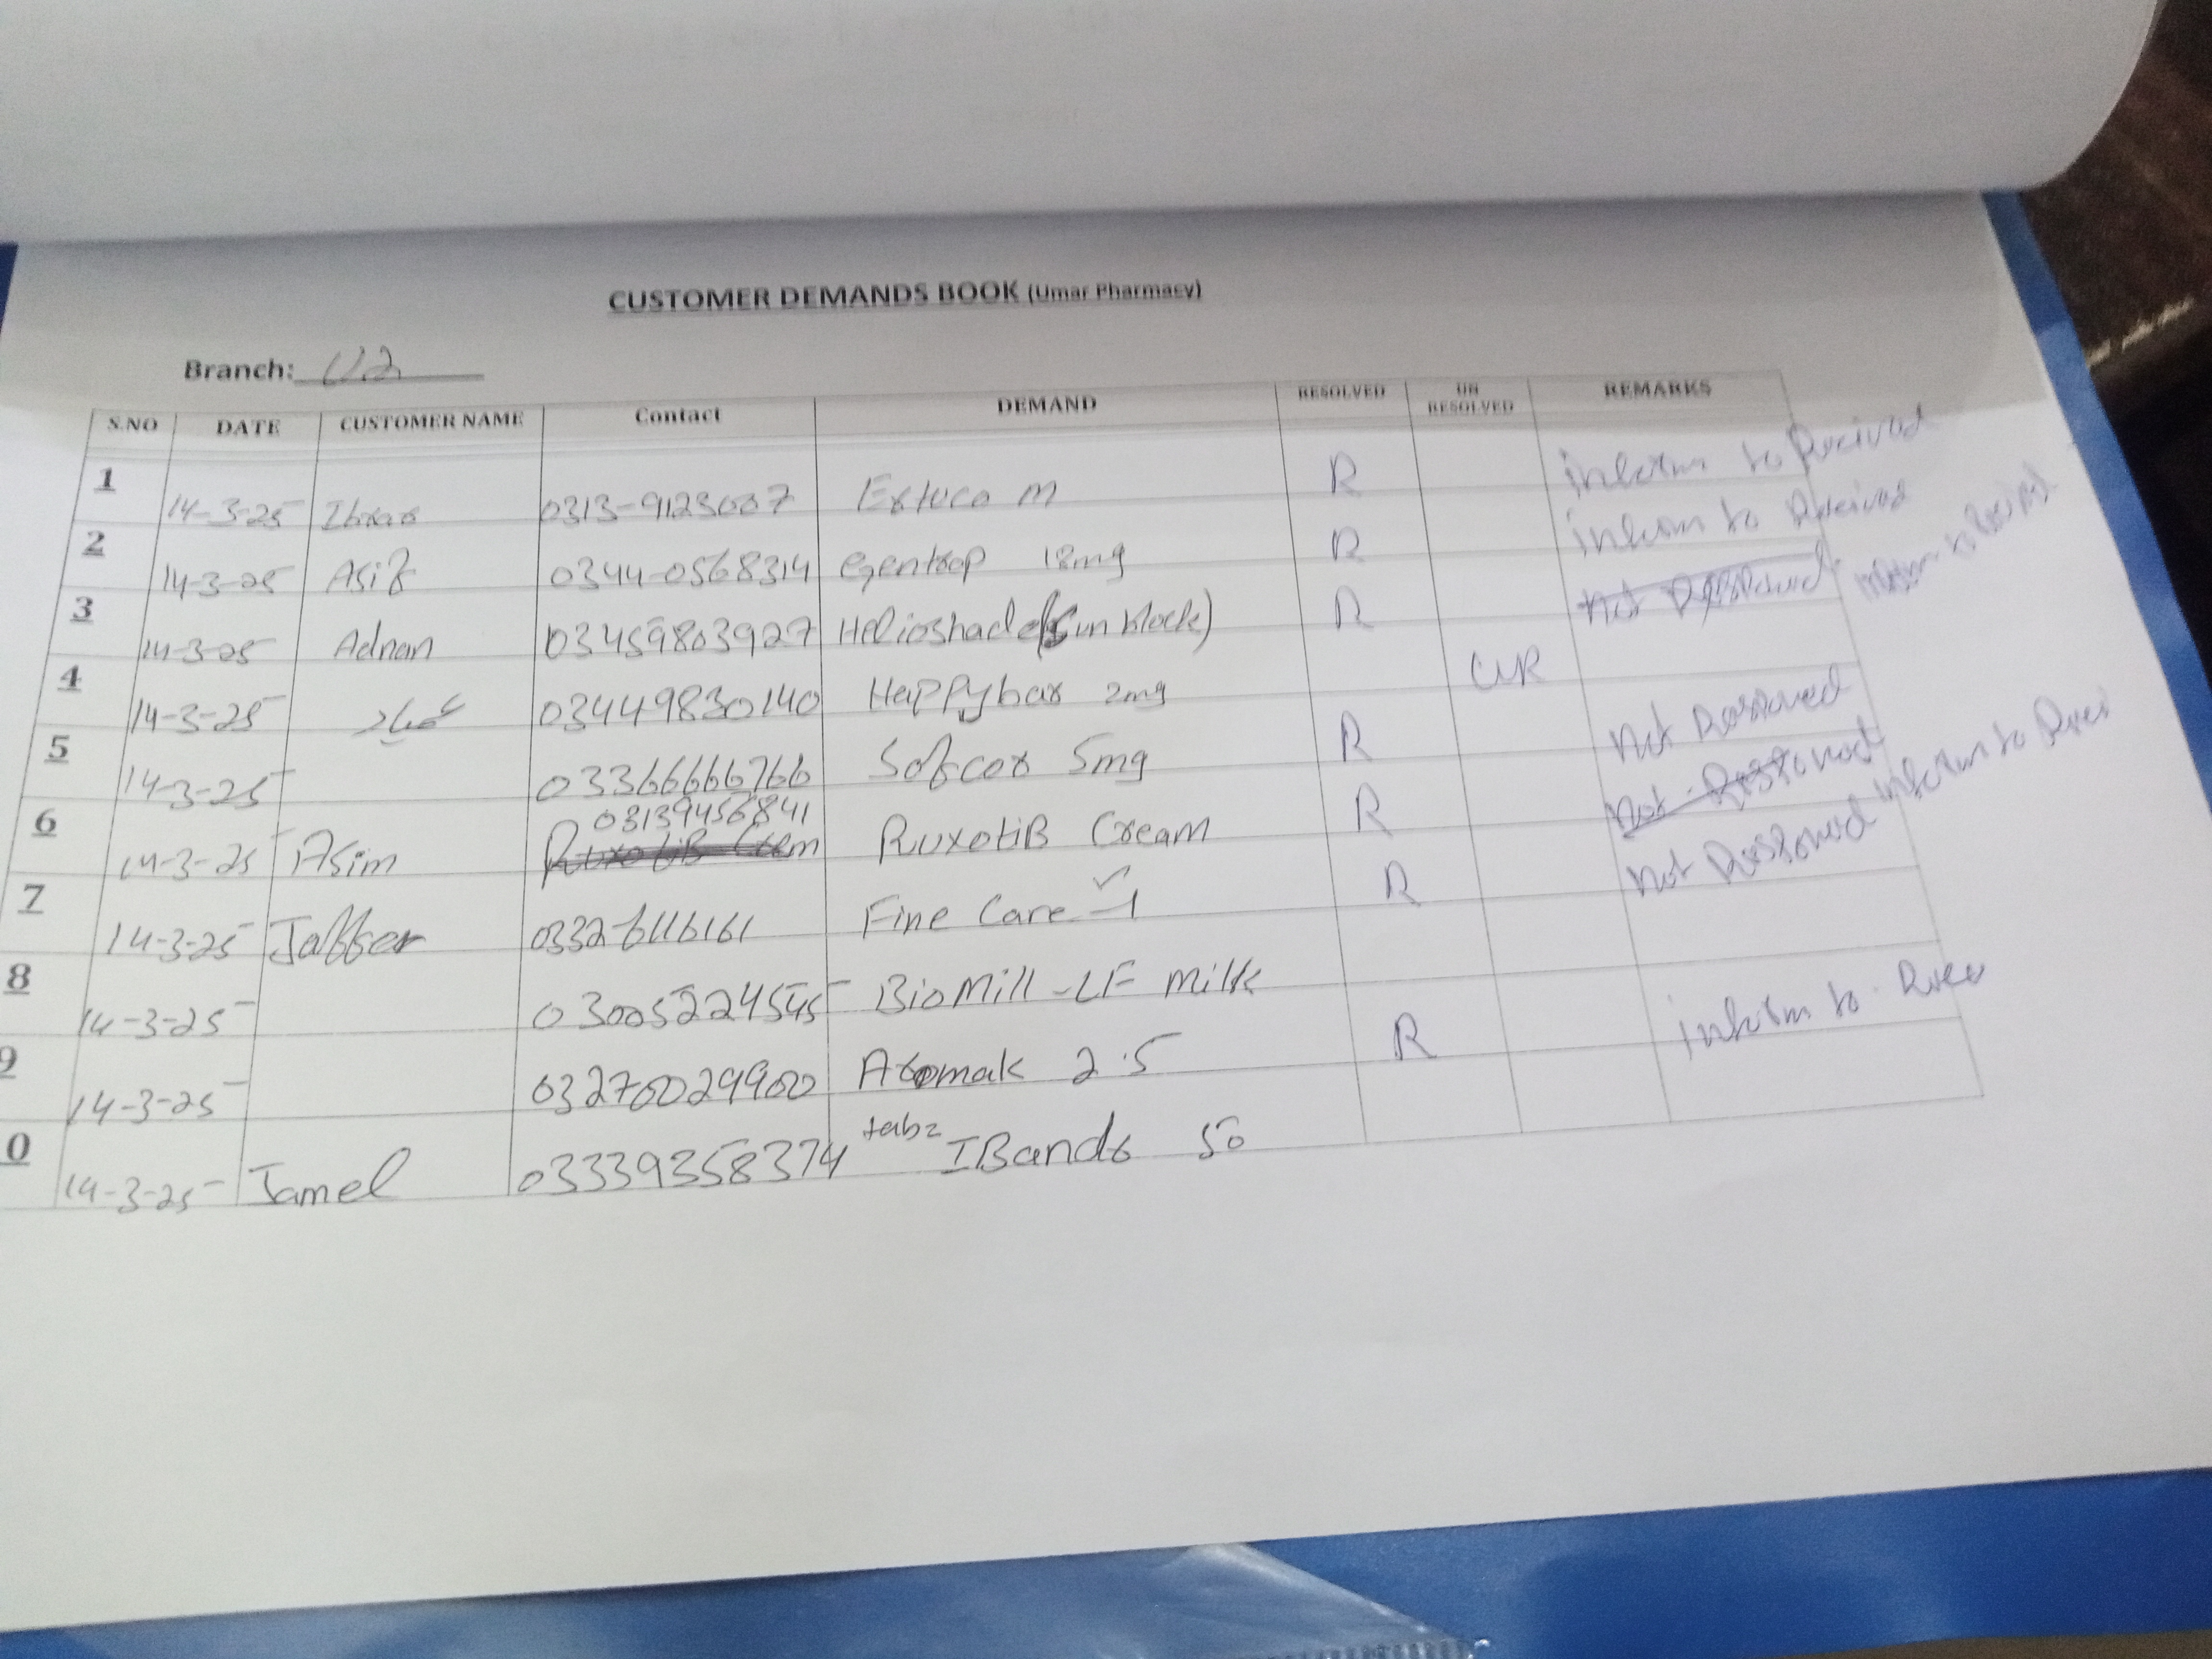 CUSTOMER DEMANDS BOOK (Umar Pharmacy)
Branch: U2
S.NO DATE CUSTOMER NAME Contact DEMAND RESOLVED UN RESOLVED REMARKS
1 14-3-25 Ibrar 0313-9123007 Extuca m R inform to Recived
2 14-3-25 Asif 0344-0568314 egentrop 18mg R inform to Recived
3 14-3-25 Adnan 03459803927 Helioshade (Sun block) R not inform to
4 14-3-25 03449830140 Happybar 2mg UR not
5 14-3-25 03366666766 Sofcox 5mg R not inform to
6 14-3-25 Asim 03139456841 RuxotiB Cream RuxotiB Cream R not
7 14-3-25 Jaffer 0332-6116161 Fine Care -1 R
8 14-3-25 03005224545 BioMill-LF milk
9 14-3-25 03270029900 Atomak 2.5 R inform to
0 14-3-25 Jamel 03339358374 tabz IBands 50